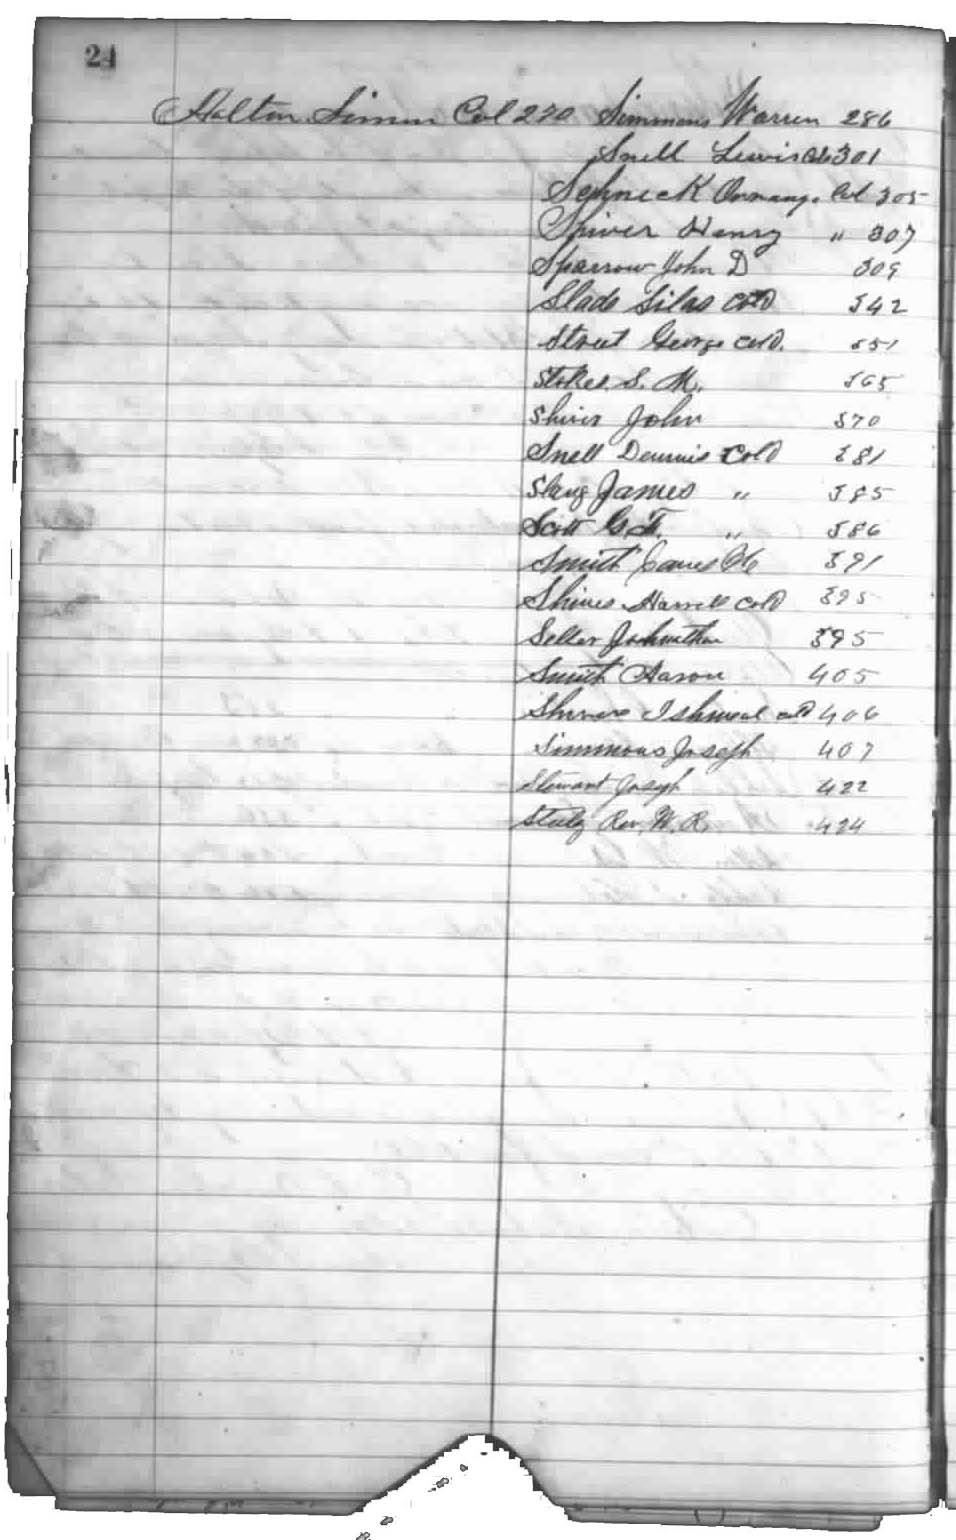 24
Halton Simon Col 270 Simmons Warren 286
Snell Lewis Col 301
Schneck Col 305
Shiver Henry " 307
Sparrow John D 309
Slade Silas Cold 342
Street George Cold. 351
Stokes S. M. 365
Shiver John 370
Snell Dennis Cold 381
James " 385
Scott G. F. " 386
Smith James 391
Shines Harrell Cold 395
Seller Johnathan 395
Smith Aaron 405
Ishmeal Cold 406
Simmons Joseph 407
Stewart Joseph 422
Rev. W. R. 424